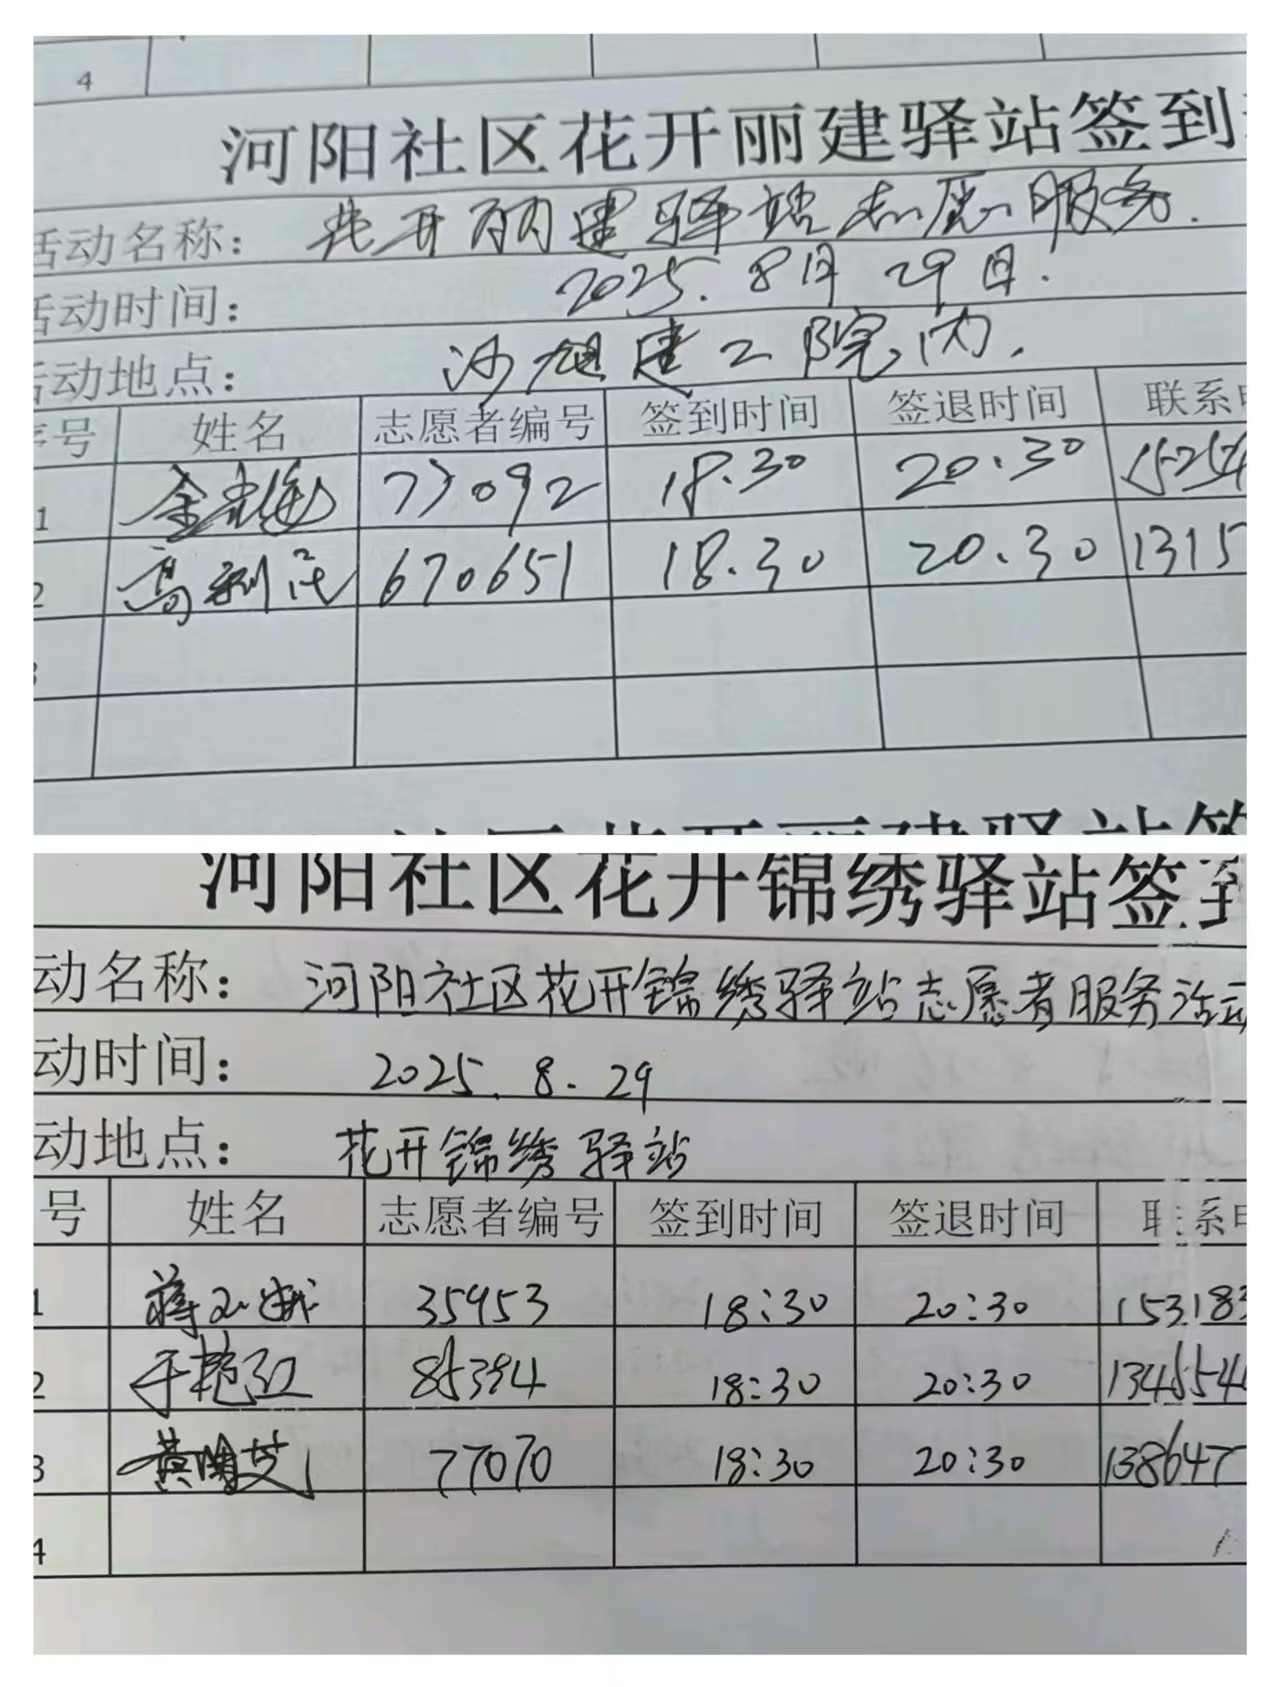 4
河阳社区花开丽建驿站签到
活动名称： 花开丽建驿站志愿服务.
活动时间： 2025.8月29日.
活动地点： 沙旭建工院内.
序号 姓名 志愿者编号 签到时间 签退时间 联系电
1 77092 18.30 20.30 15254
2 高利民 670651 18.30 20.30 1315
3
河阳社区花开丽建驿站签
河阳社区花开锦绣驿站签到
动名称： 河阳社区花开锦绣驿站志愿者服务活动
动时间： 2025.8.29
动地点： 花开锦绣驿站
号 姓名 志愿者编号 签到时间 签退时间 联系电
1 蒋玉娥 35953 18:30 20:30 153183
2 于艳红 85394 18:30 20:30 1345544
3 77070 18:30 20:30 138647
4